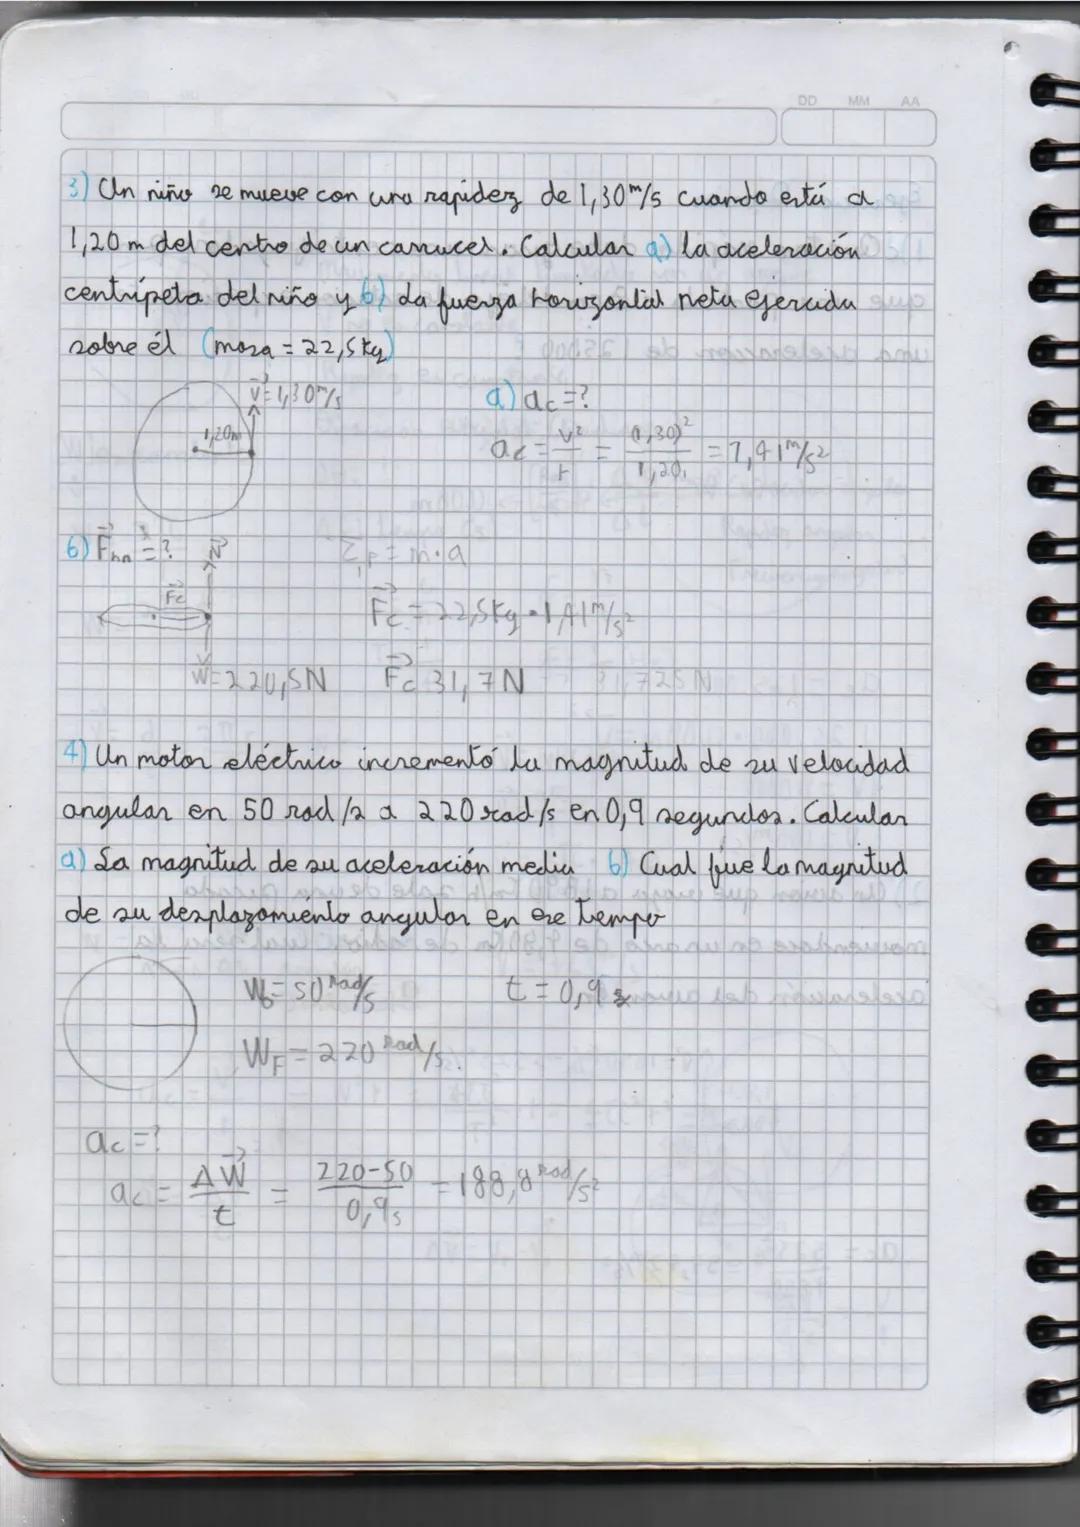 DD MM AA
3) Un niño se mueve con una rapidez de 1,30 m/s cuando está a
1,20 m del centro de un carrucel. Calcular a) la aceleración
centrípeta del niño y b) la fuerza horizontal neta ejercida
sobre él (masa = 22,5 kg)
V = 1,30 m/s
1,20m
a) ac = ?
ac = V²/r = (1,30)²/1,20 = 1,41 m/s²
b) Fhn = ?
N
Σ F = m·a
Fc
Fc = 22,5kg · 1,41 m/s²
W = 220,5N
Fc 31,7 N
4) Un motor eléctrico incrementó la magnitud de su velocidad
angular en 50 rad/s a 220 rad/s en 0,9 segundos. Calcular
a) La magnitud de su aceleración media b) Cual fue la magnitud
de su desplazamiento angular en ese tiempo
W₀ = 50 rad/s
t = 0,9 s
WF = 220 rad/s.
ac = ?
ac = ΔW/t = 220-50/0,9s = 188,8 rad/s²